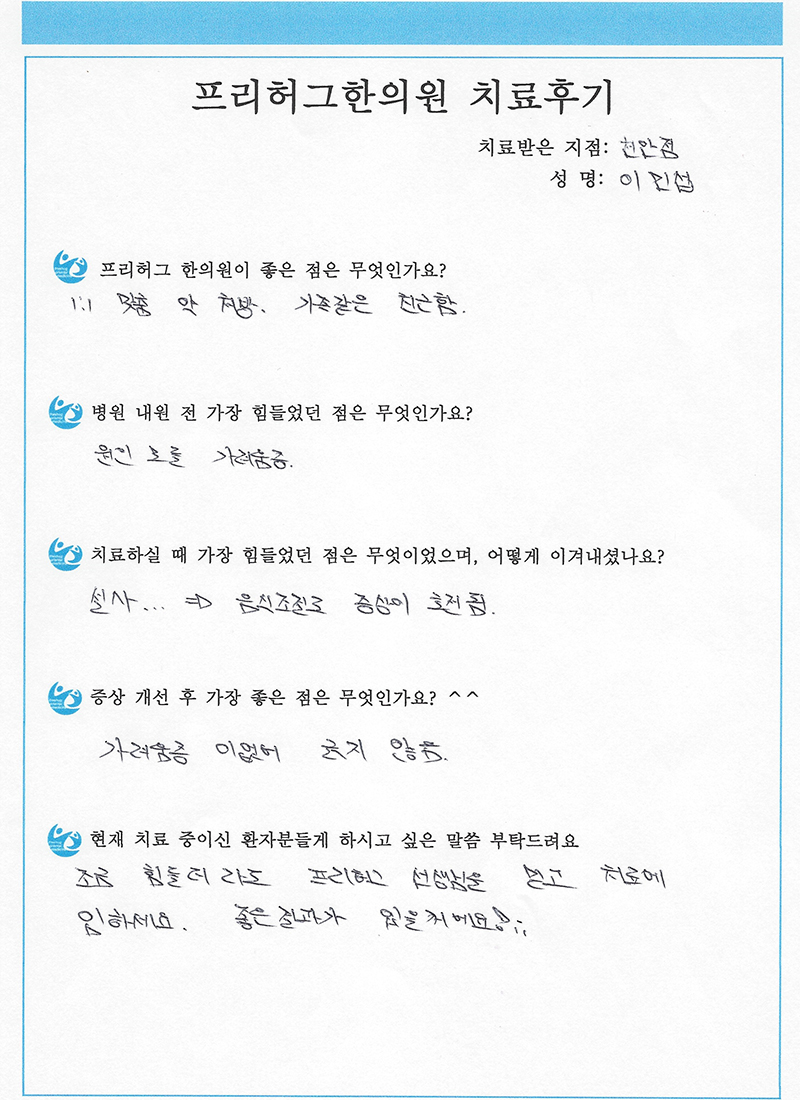 프리허그한의원 치료후기
치료받은 지점: 천안점
성 명: 이민섭
프리허그 한의원이 좋은 점은 무엇인가요?
1:1 맞춤 약 처방. 가족같은 친근함.
병원 내원 전 가장 힘들었던 점은 무엇인가요?
원인 모를 가려움증.
치료하실 때 가장 힘들었던 점은 무엇이었으며, 어떻게 이겨내셨나요?
설사... => 음식조절로 증상이 호전됨.
증상 개선 후 가장 좋은 점은 무엇인가요? ^^
가려움증 이없어 긁지 않음.
현재 치료 중이신 환자분들게 하시고 싶은 말씀 부탁드려요
조금 힘들더라도 프리허그 선생님을 믿고 치료에
임하세요. 좋은결과가 있을거에요!;;